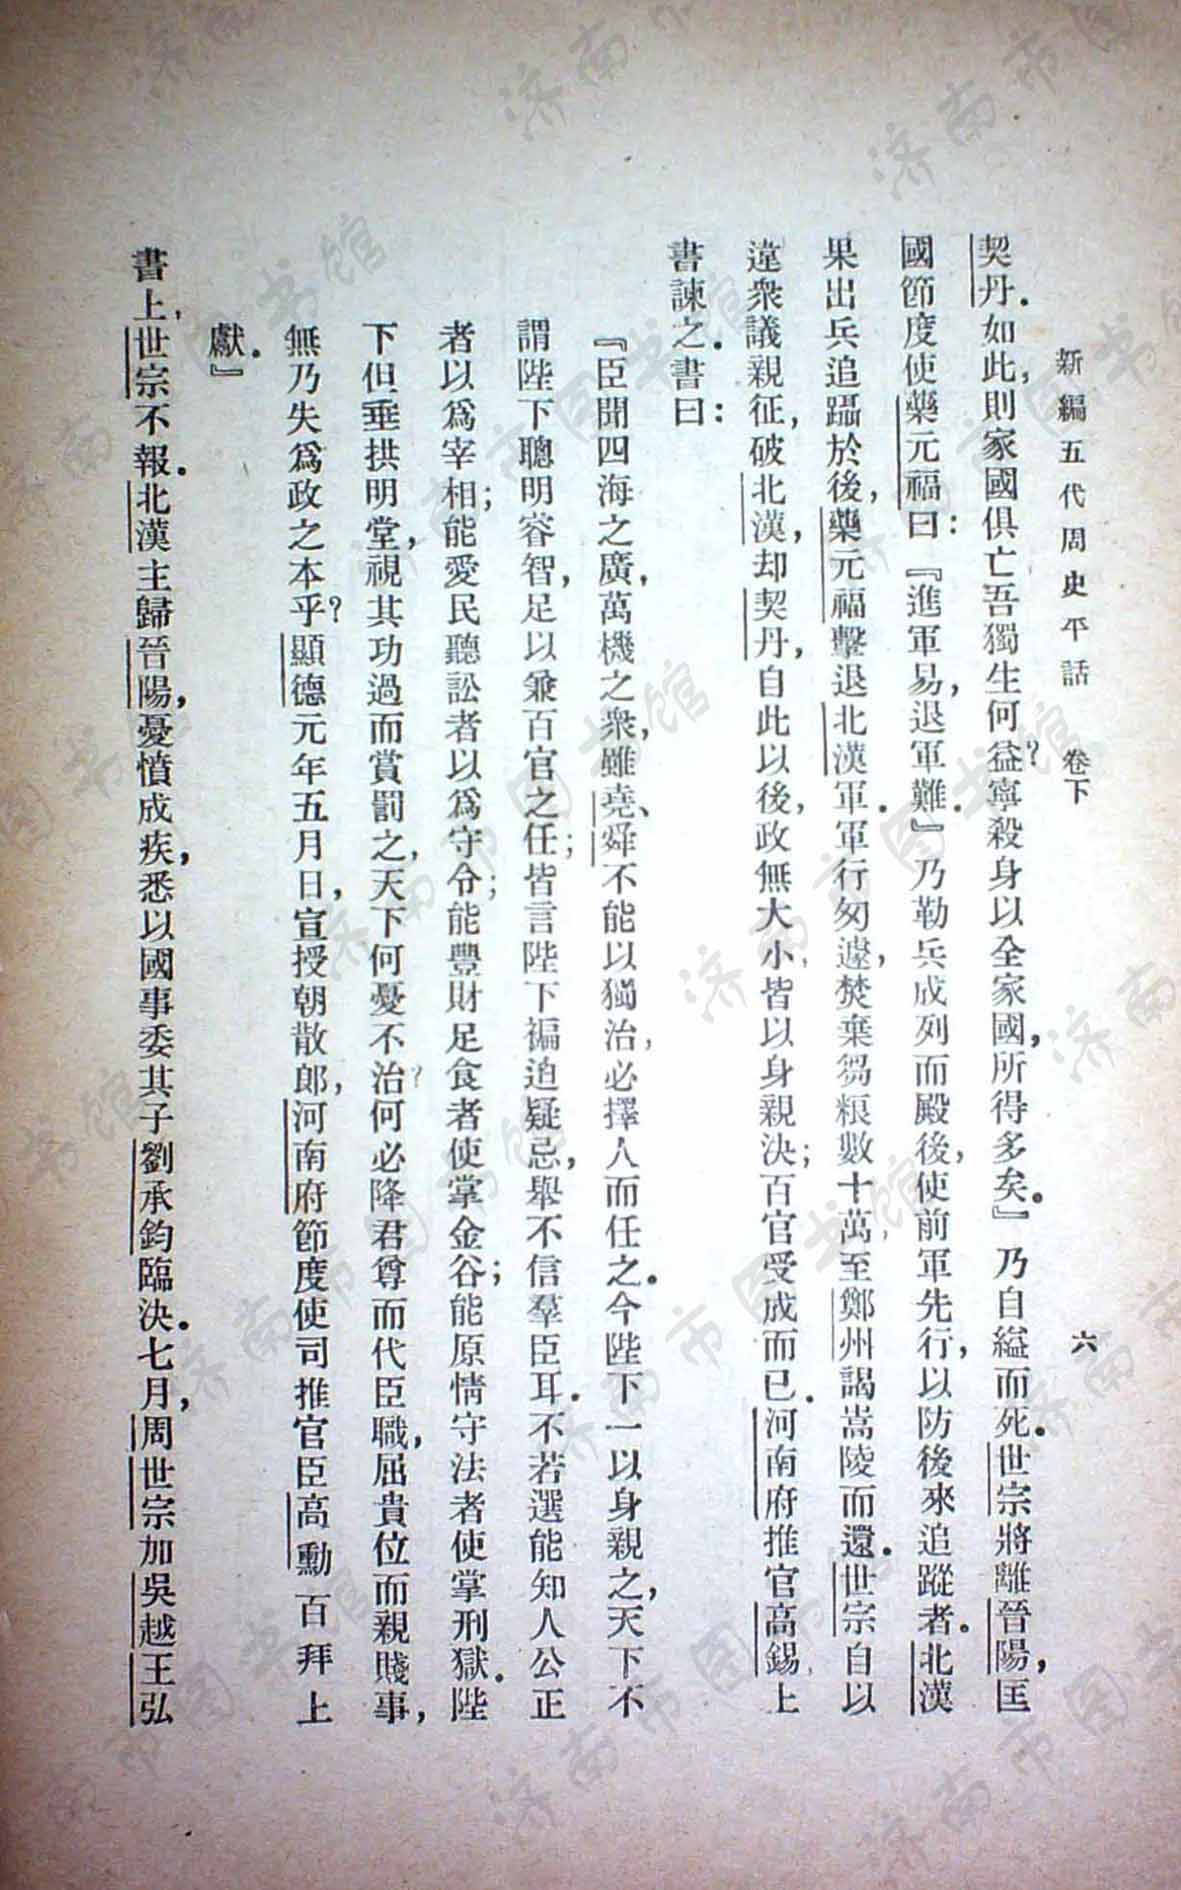 新編五代周史平話　卷下　六
契丹．如此，則家國俱亡吾獨生何益？寧殺身以全家國，所得多矣．』乃自縊而死．世宗將離晉陽，匡
國節度使藥元福曰：『進軍易，退軍難．』乃勒兵成列而殿後，使前軍先行，以防後來追蹤者．北漢
果出兵追躡於後，藥元福擊退北漢軍．軍行匆遽，焚棄芻粮數十萬，至鄭州謁嵩陵而還．世宗自以
違衆議親征，破北漢，却契丹，自此以後，政無大小，皆以身親決；百官受成而已．河南府推官高錫上
書諫之．書曰：
『臣聞四海之廣，萬機之衆，雖堯、舜不能以獨治，必擇人而任之．今陛下一以身親之，天下不
謂陛下聰明睿智，足以兼百官之任；皆言陛下褊迫疑忌，舉不信羣臣耳．不若選能知人公正
者以爲宰相；能愛民聽訟者以爲守令；能豐財足食者使掌金谷；能原情守法者使掌刑獄．陛
下但垂拱明堂，視其功過而賞罰之，天下何憂不治？何必降君尊而代臣職，屈貴位而親賤事，
無乃失爲政之本乎？顯德元年五月日，宣授朝散郎，河南府節度使司推官臣高勳百拜上
獻．』
書上，世宗不報．北漢主歸晉陽，憂憤成疾，悉以國事委其子劉承鈞臨決．七月，周世宗加吳越王弘